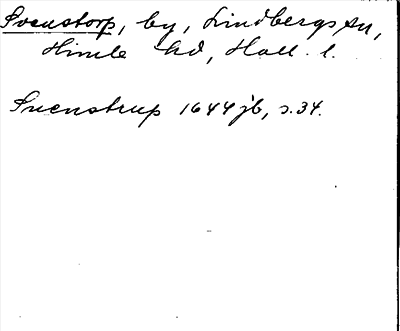 Svenstorp, by, Lindbergs sn,
Himle hd, Hall. l.
Svenstrup 1644 jb, s. 34.